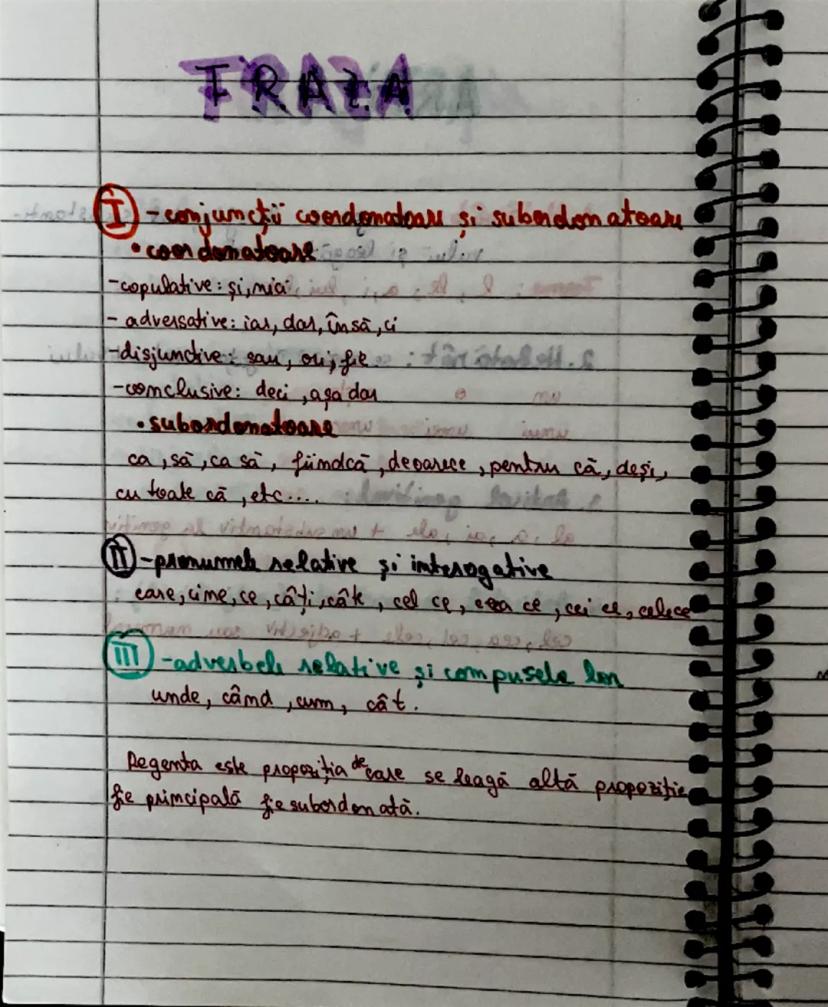 FRAZA
I - conjuncții coordonatoare și subordonatoare
• coordonatoare
- copulative: și, nici
- adversative: iar, dar, însă, ci
- disjunctive: sau, ori, fie
- conclusive: deci, așa dar
• subordonatoare
ca, să, ca să, fiindcă, deoarece, pentru că, deși,
cu toate că, etc....
II - pronumele relative și interogative
care, cine, ce, câți, câte, cel ce, ceea ce, cei ce, celece
III - adverbele relative și compusele lor
unde, când, cum, cât.
Regenta este propoziția de care se leagă altă propoziție
fie principală fie subordonată.